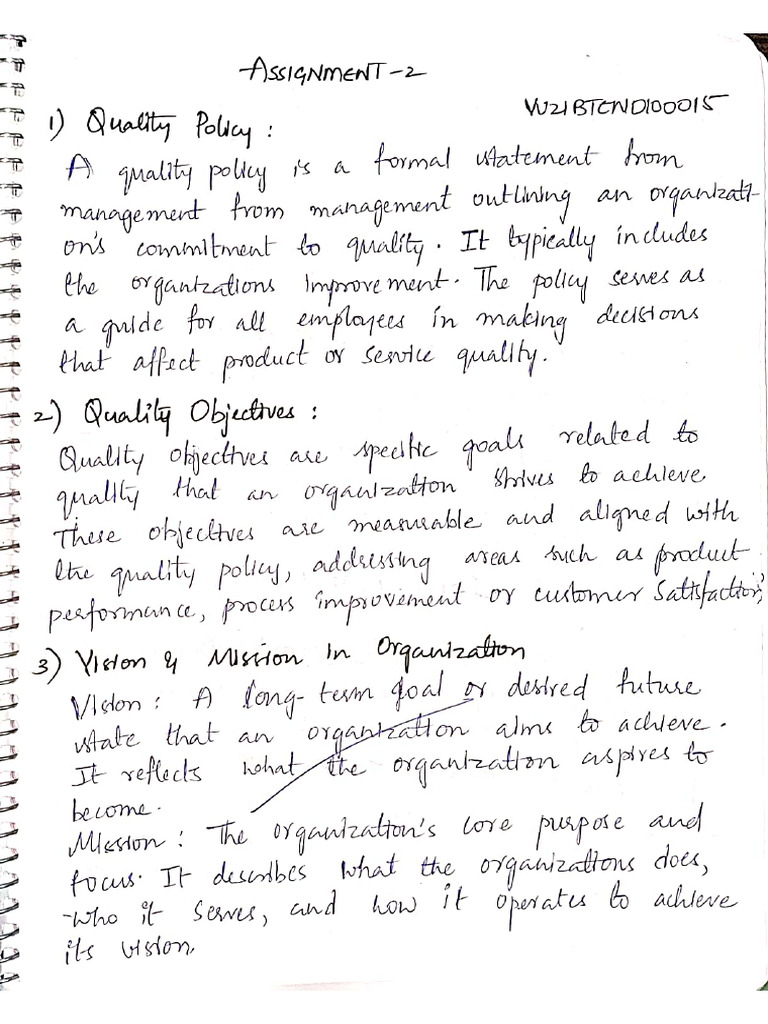 ASSIGNMENT-2
VU21BTCND100015
1) Quality Policy :
A quality policy is a formal statement from
management from management outlining an organizati-
on's commitment to quality. It typically includes
the organizations improvement. The policy serves as
a guide for all employees in making decisions
that affect product or service quality.
2) Quality Objectives :
Quality objectives are specific goals related to
quality that an organization strives to achieve
These objectives are measurable and aligned with
the quality policy, addressing areas such as product
performance, process improvement or customer satisfaction,
3) Vision & Mission in Organization
Vision : A long-term goal or desired future
state that an organization aims to achieve.
It reflects what the organization aspires to
become.
Mission : The organization's core purpose and
focus. It describes what the organizations does,
who it serves, and how it operates to achieve
its vision.